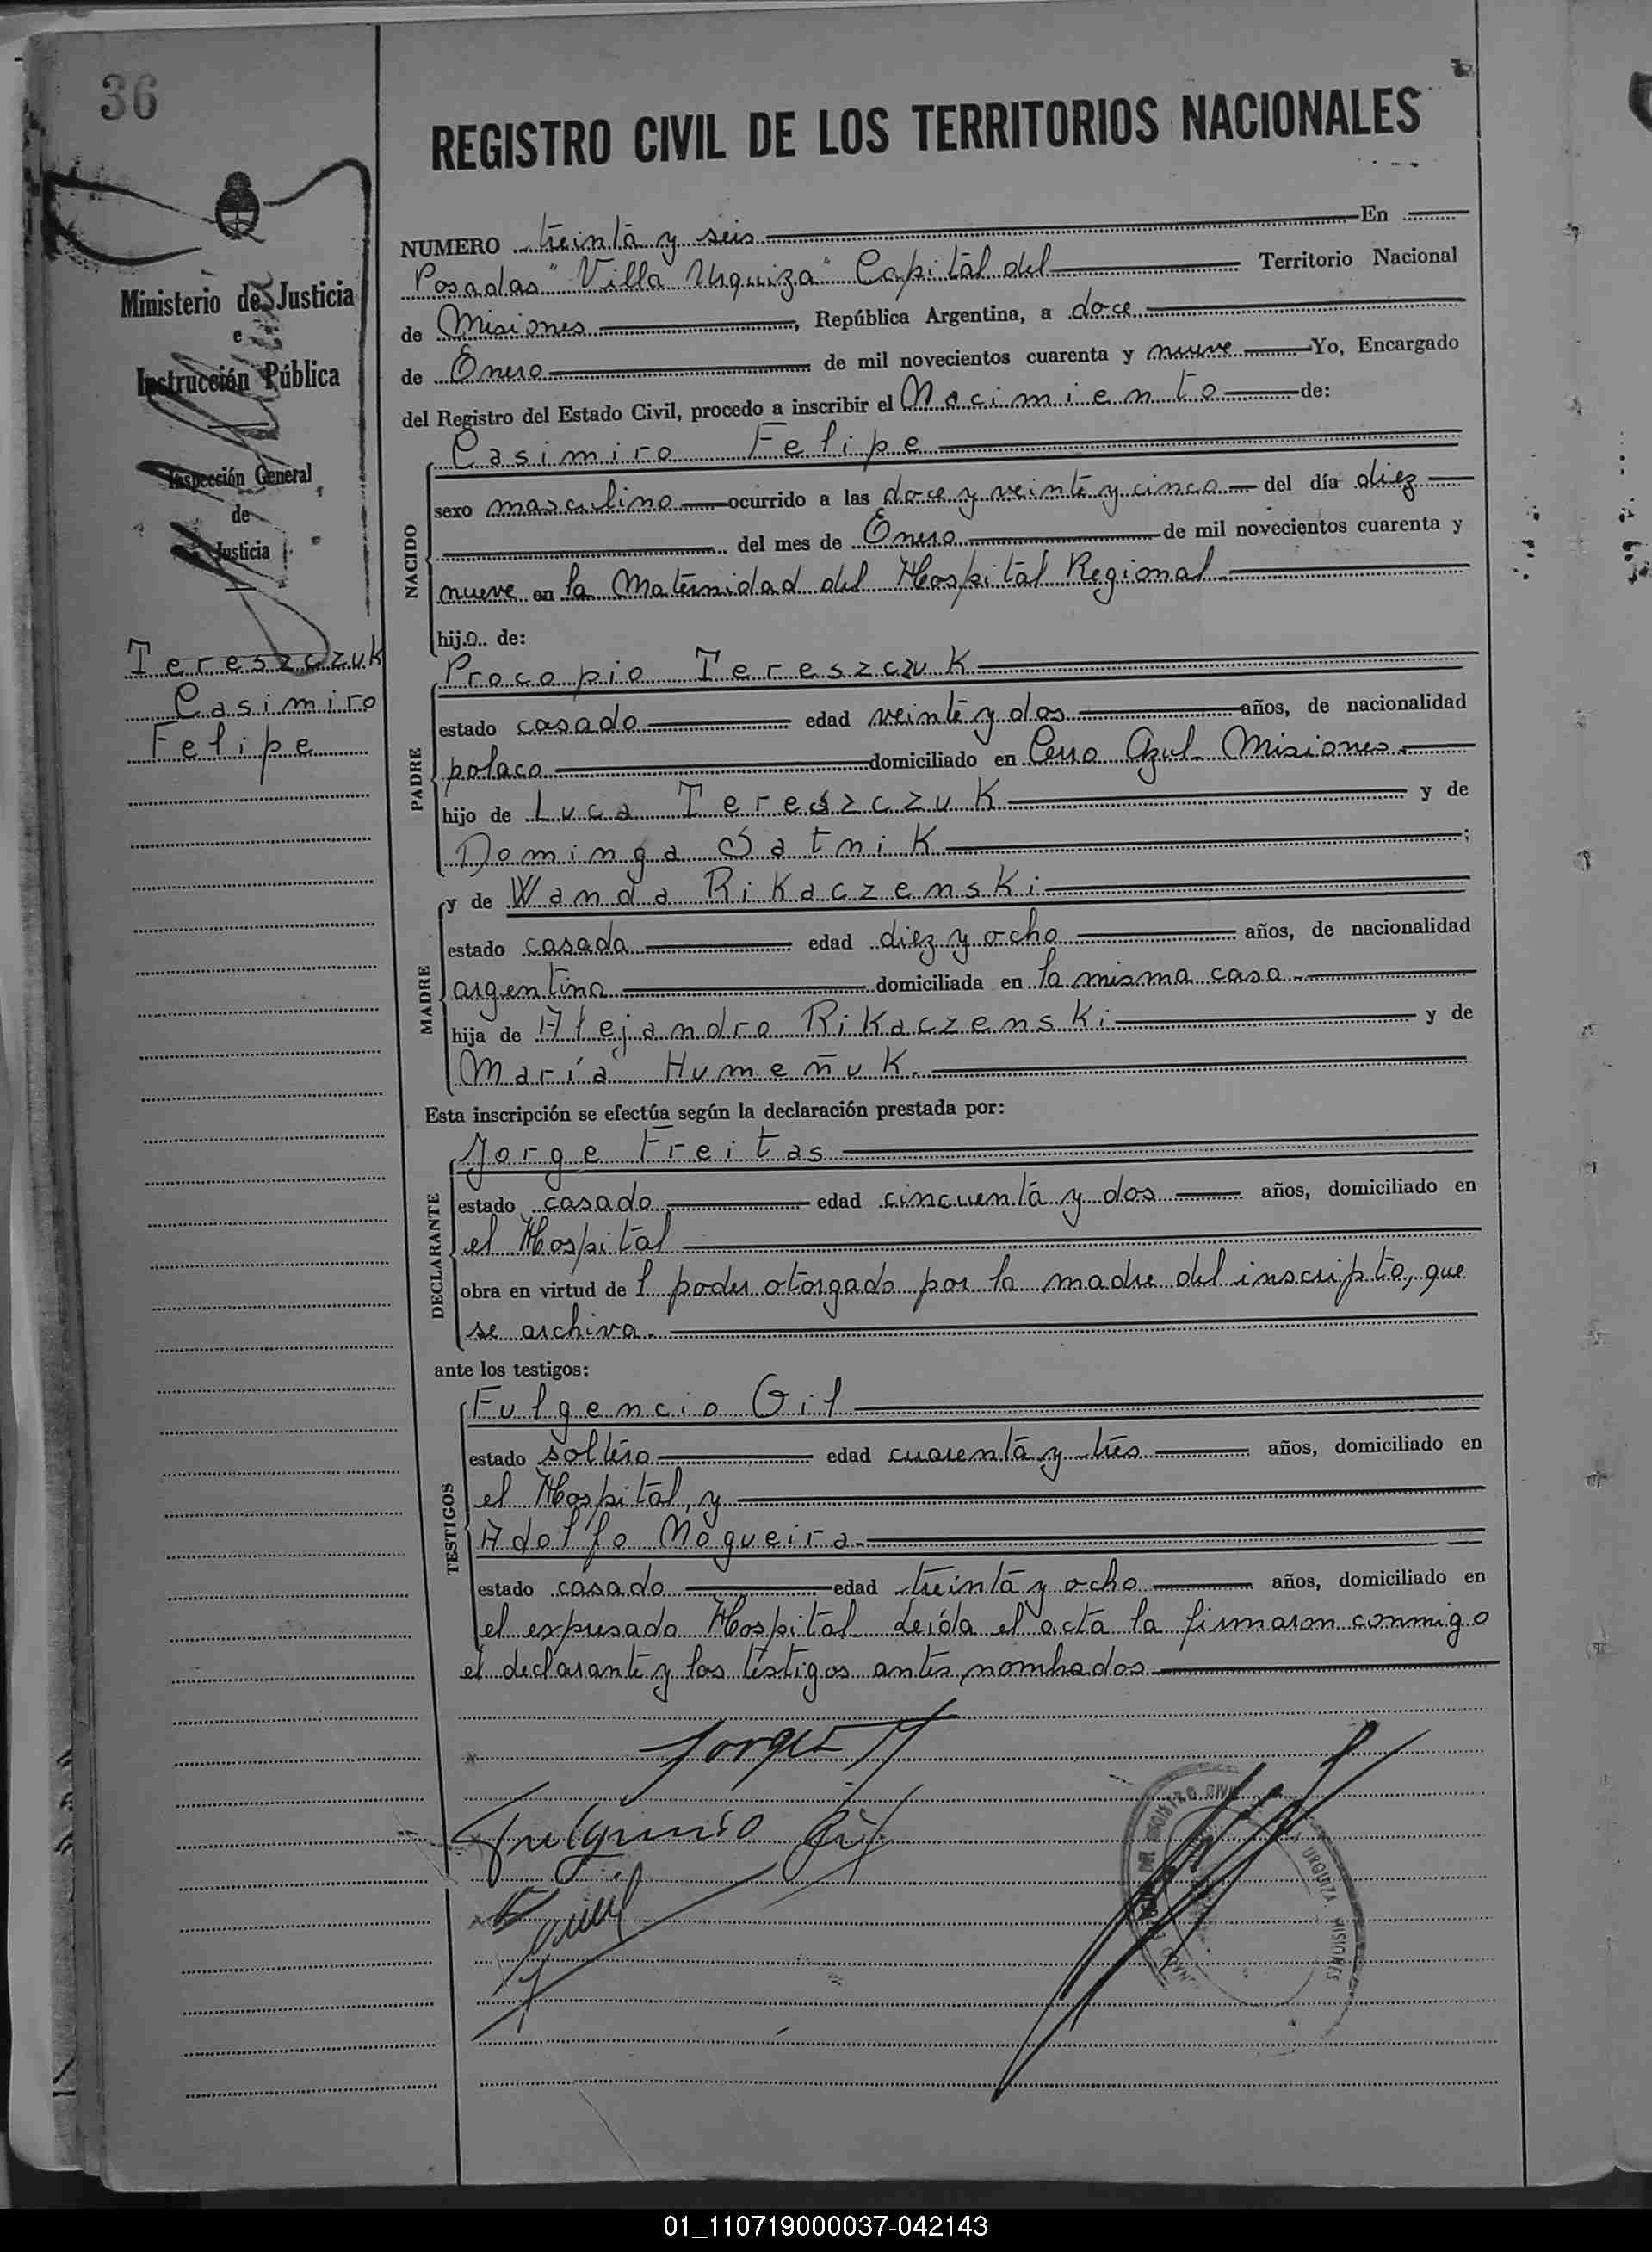 36
REGISTRO CIVIL DE LOS TERRITORIOS NACIONALES
Ministerio de Justicia
e
Instrucción Pública
Inspección General
de
Justicia
Tereszczuk
Casimiro
Felipe
NUMERO treinta y seis En
Posadas "Villa Urquiza" Capital del Territorio Nacional
de Misiones, República Argentina, a doce
de Enero de mil novecientos cuarenta y nueve Yo, Encargado
del Registro del Estado Civil, procedo a inscribir el Nacimiento de:
NACIDO
Casimiro Felipe
sexo masculino ocurrido a las doce y veinte y cinco del día diez
del mes de Enero de mil novecientos cuarenta y
nueve en la Maternidad del Hospital Regional
hijo de:
PADRE
Procopio Tereszczuk
estado casado edad veinte y dos años, de nacionalidad
polaco domiciliado en Cerro Azul- Misiones.
hijo de Luca Tereszczuk y de
Dominga Satnik ;
MADRE
y de Wanda Rikaczenski
estado casada edad diez y ocho años, de nacionalidad
argentina domiciliada en la misma casa
hija de Alejandro Rikaczenski y de
María Humeñuk.
Esta inscripción se efectúa según la declaración prestada por:
DECLARANTE
Jorge Freitas
estado casado edad cincuenta y dos años, domiciliado en
el Hospital
obra en virtud de l poder otorgado por la madre del inscripto, que
se archiva.
ante los testigos:
TESTIGOS
Fulgencio Gil
estado soltero edad cuarenta y tres años, domiciliado en
el Hospital, y
Adolfo Nogueira.
estado casado edad treinta y ocho años, domiciliado en
el expresado Hospital- Leída el acta la firmaron conmigo
el declarante y los testigos antes nombrados
Jorge
Fulgencio Gil
REGISTRO CIVIL
URQUIZA MISIONES
01_110719000037-042143